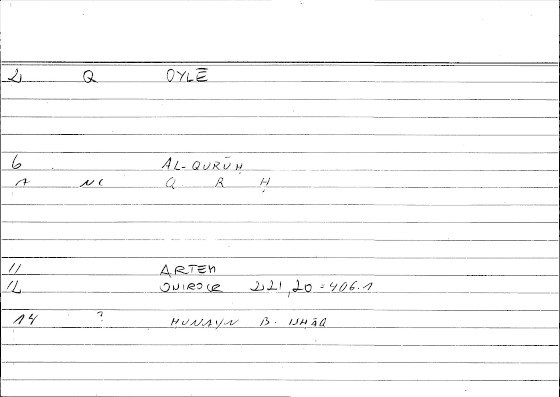 2 Q OYLĒ
6 AL-QURŪḤ
7 NC Q R Ḥ
11 ARTEM
12 221,20 = 406.1
14 ? ḤUNAYN B. ISḤĀQ